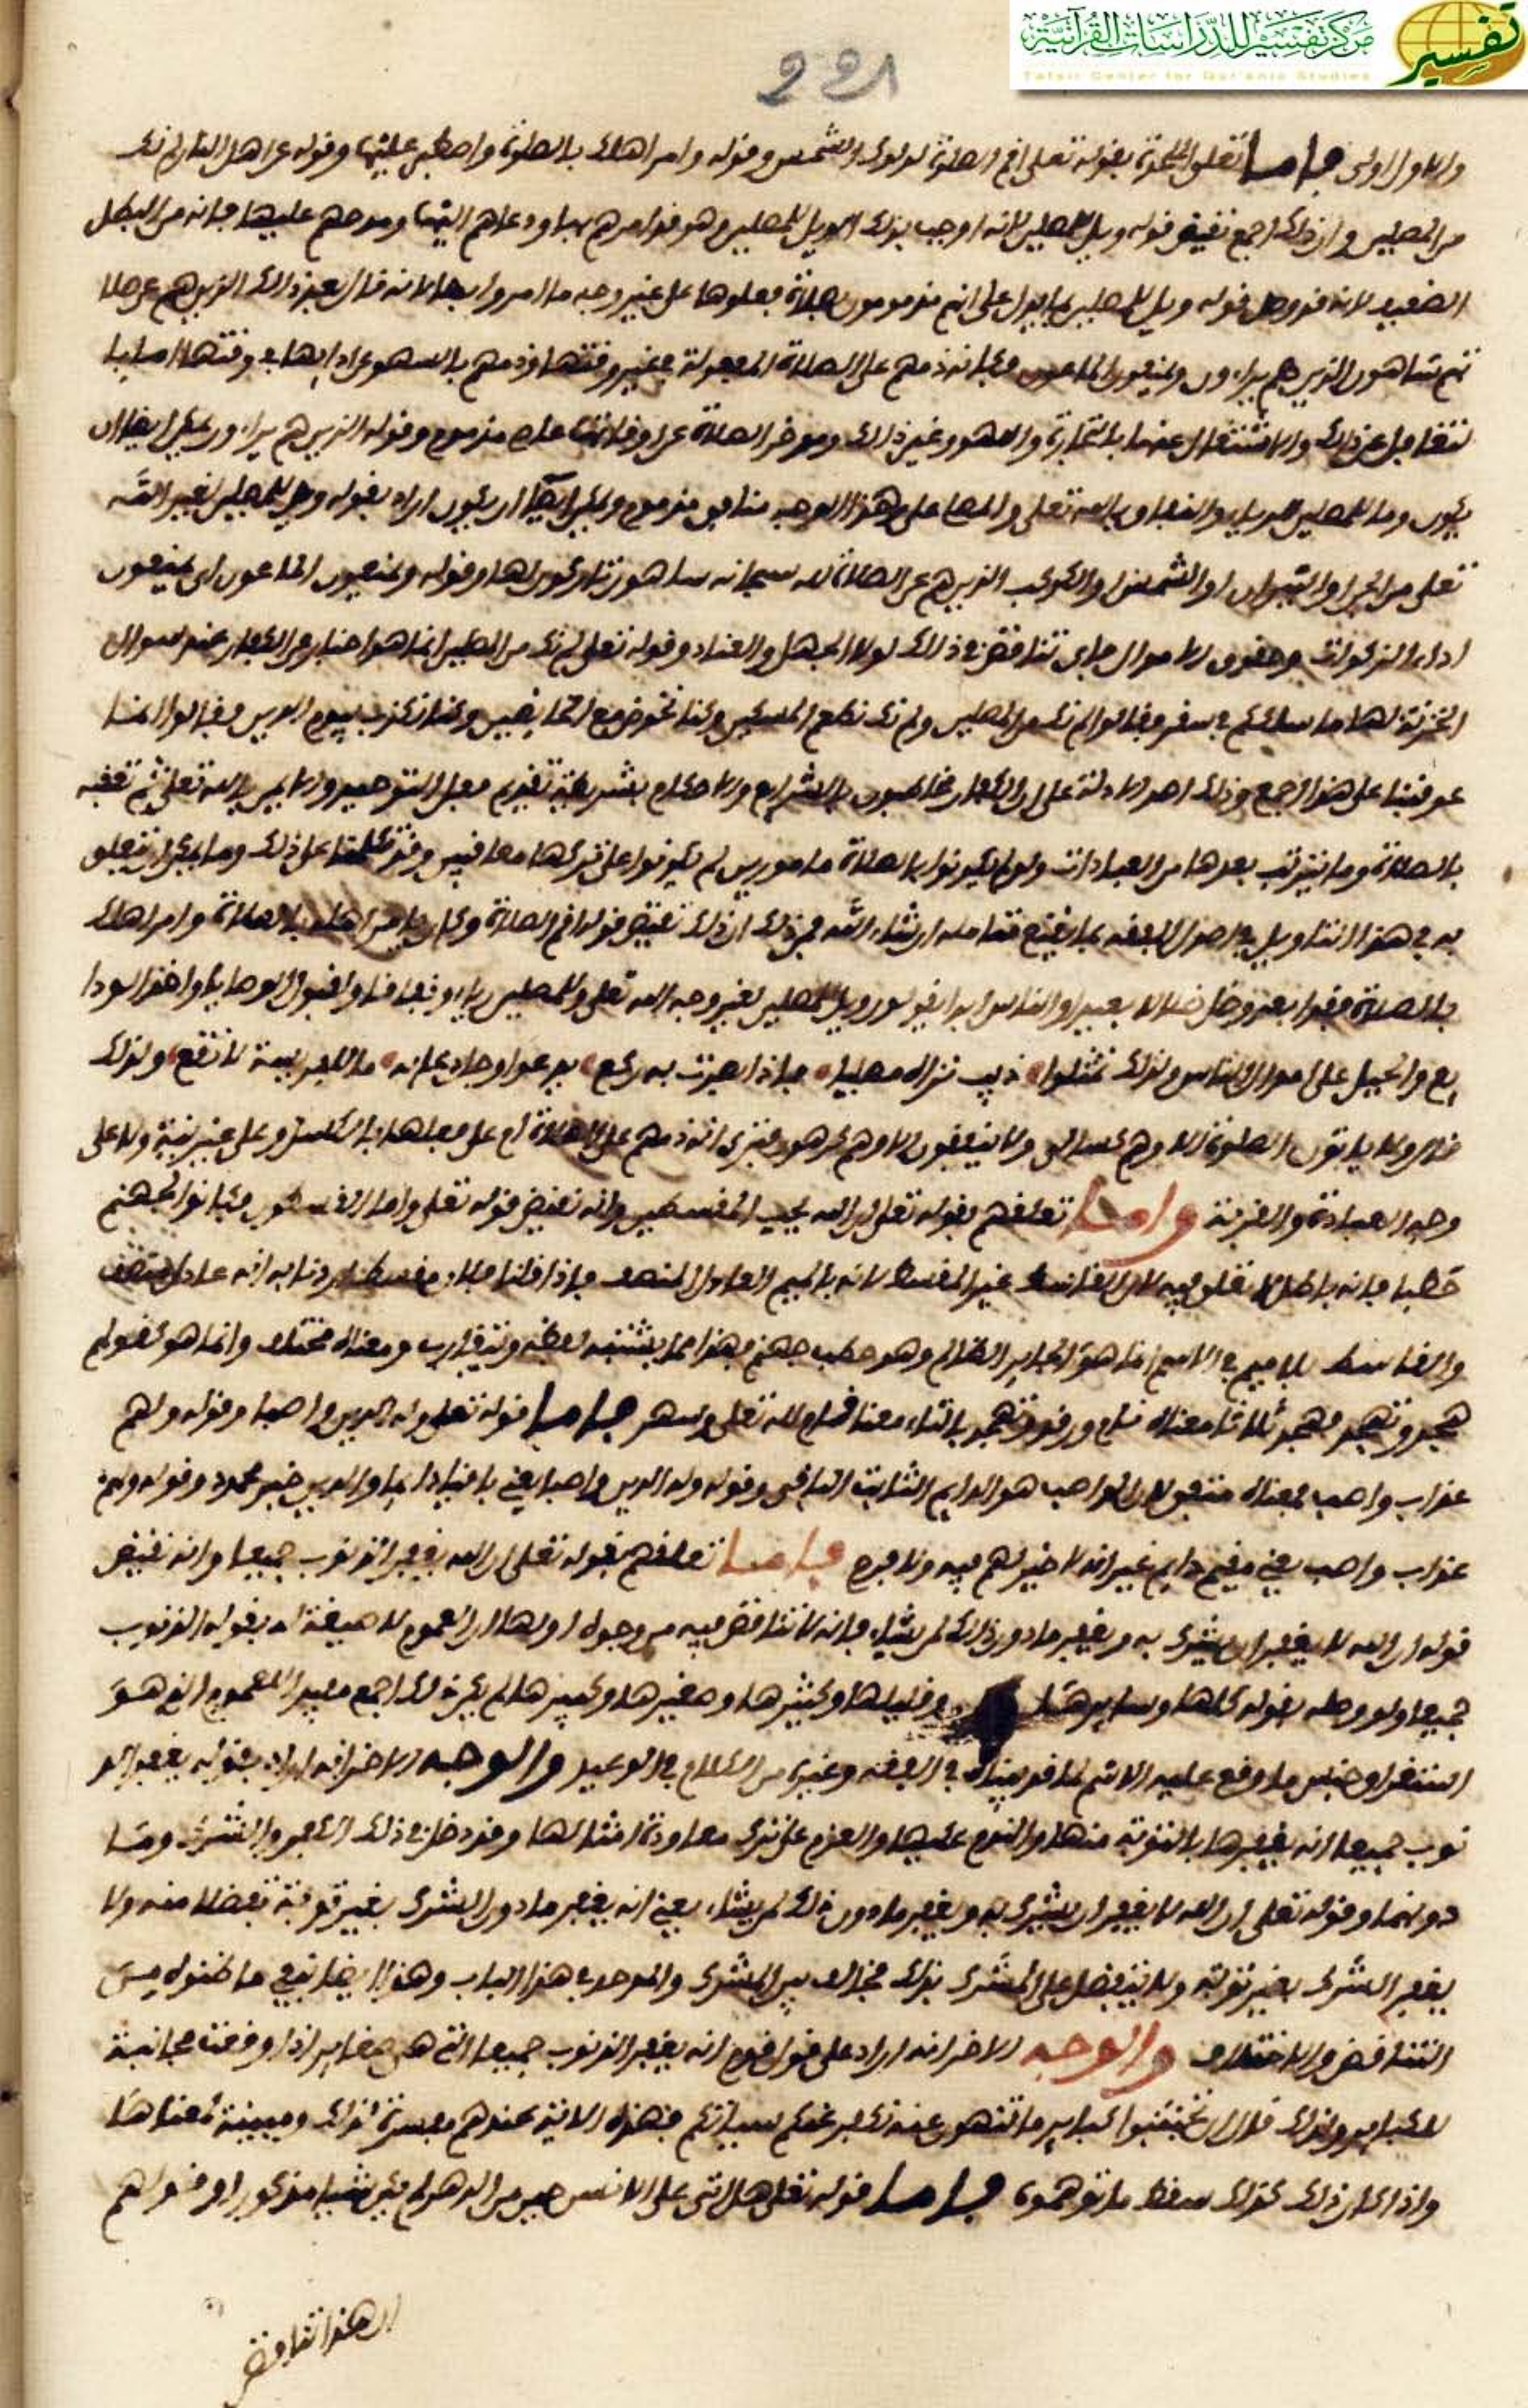 مركز تفسير للدراسات القرآنية
Tafsir Center for Qur'anic Studies
تفسير
221
والاول اولى فاما تعلق الملحدة بقوله تعلى اقم الصلوة لدلوك الشمس وقوله وامر اهلك بالصلوة واصطبر عليها وقوله عن اهل النار لم نك
من المصلين وان ذلك اجمع نقيض قوله ويل للمصلين لانه اوجب بذلك الويل للمصلين وهو قد امرهم بها ودعاهم اليها ومدحهم عليها فانه من البطل
البعيد لانه قد وصل قوله ويل للمصلين بما يدل على انهم مذمومون بصلاة فعلوها على غير وجه ما امروا بها لانه قال بعد ذالك الذين هم عن صلا
تهم ساهون الذين هم يراءون ويمنعون الماعون فكانه ذمهم على الصلاة المفعولة في غير وقتها وذمهم بالسهو عن ادايها في وقتها
لتغافل عن ذلك والاشتغال عنها بالتجارة واللهو وغير ذالك وموخر الصلاة عن اوقاتها عاص مذموم وقوله الذين هم يراءون يمكن ايضا ان
يكون وما للمصلين للرياء والنفاق بالله تعلى والمصلى على هذا الوجه منافق مذموم ويمكن ايضا ان يكون اراد بقوله ويل للمصلين لغير الله
تعلى من الحجر والنيران او الشمس والكوكب الذين هم عن الصلاة لله سبحانه ساهون تاركون لها وقوله ويمنعون الماعون اى يمنعون
اداء الزكوات وحقوق الاموال فاى تناقض في ذلك لولا الجهل والعناد وقوله تعلى لم نك من المصلين انما هو اخبار عن الكفار عند سوال
الخزنة لها ما سلككم في سقر فقالوا لم نك من المصلين ولم نك نطعم المسكين وكنا نخوض مع الخايضين وكنا نكذب بيوم الدين فقالوا انما
عوقبنا على هذا اجمع وذلك احد الادلة على ان الكفار مخاطبون بالشرايع والاحكام بشريطة تقديم فعل التوحيد والايمان بالله تعلى ثم تعقبه
بالصلاة وما يترتب بعدها من العبادات ولو لم يكونوا بالصلاة مامورين لم يكونوا على تركها معاقبين وقد تكلمنا على ذلك وما يمكن ان يتعلق
به في هذا التاويل في اصول الفقه بما يقنع متامله ان شاء الله فمن ذلك ان ذلك نقيض قوله اقم الصلاة وكان يامر اهله بالصلاة وامر اهلك
بالصلاة فقد ابعد وضل ضلالا بعيدا والناس ابدا يقولون ويل للمصلين لغير وجه الله تعلى وللمصلين رياء ونفاقا ولقبول الوصايا واخذ الودا
يع والحيل على اموال الناس ولذلك تمثلوا ذيب تراه مصليا فاذا بصرت به ركع يدعو وجل دعايه ما للفريسة لا تقع ولذلك
قال ولا ياتون الصلوة الا وهم كسالى ولا ينفقون الا وهم كرهون فترى انه ذمهم على الصلاة ام على فعلها بالكسل وعلى غير نية ولا على
وجه العبادة والقربة واما تعلقهم بقوله تعلى ان الله يحب المقسطين وانه نقيض قوله تعلى واما القاسطون فكانوا لجهنم
حطبا فانه باطل لا تعلق فيه لان القاسط غير المقسط لانه بالميم العادل المنصف فاذا قلنا فلان مقسط اردنا به انه عادل منصف
والقاسط بلا ميم في الاسم انما هو الجاير الظالم وهو حطب جهنم فهذا مما يشتبه لفظه ويتقارب ومعناه مختلف وانما هو كقولهم
هجد وتهجد فهجد ثلاثا معناه نام ورقد وتهجد بالتاء معناه قام لله تعلى وسهر فاما قوله تعلى وله الدين واصبا وقوله ولهم
عذاب واصب فمعناه متفق لان الواصب هو الدايم الثابت الباقى وقوله وله الدين واصبا يعني باقيا دايما والدين خير محمود وقوله ولهم
عذاب واصب يعني مقيم دايم غير انه لا خير لهم فيه ولا فرج فاما تعلقهم بقوله تعلى ان الله يغفر الذنوب جميعا وانه نقيض
قوله ان الله لا يغفر ان يشرك به ويغفر ما دون ذلك لمن يشاء فانه لا تناقض فيه من وجوه اولها ان العموم لا صيغة له بقوله الذنوب
جميعا ولو وصله بقوله كلها وسايرها وقليلها وكثيرها وصغيرها وكبيرها لم يكن ذلك اجمع مفيدا للعموم الذي هو
استغراق جنس ما وقع عليه الاسم لما قد بيناه في الفقه وغيره من الكلام في الوعيد والوجه الاخر انه اراد بقوله يغفر الذ
نوب جميعا انه يغفرها بالتوبة منها والندم عليها والعزم على ترك معاودة امثالها وقد دخل في ذلك الكفر والشرك وما
دونهما وقوله تعلى ان الله لا يغفر ان يشرك به ويغفر ما دون ذلك لمن يشاء يعني انه يغفر ما دون الشرك بغير توبة تفضلا منه ولا
يغفر الشرك بغير توبة ولا يتفضل على المشرك بذلك فخالف بين المشرك والموحد في هذا الباب وهذا ايضا ينفي ما ظنوه من
التناقض والاختلاف والوجه الاخر انه اراد على قول قوم انه يغفر الذنوب جميعا التي هي صغاير اذا وقعت مجانبة
للكباير ولذلك قال ان تجتنبوا كباير ما تنهون عنه نكفر عنكم سيئاتكم فهذه الاية عندهم مفسرة لتلك ومبينة لمعناها
واذا كان ذلك كذلك سقط ما توهموه فاما قوله تعلى هل اتى على الانسن حين من الدهر لم يكن شيئا مذكورا وقولهم
ان هذا تناقض